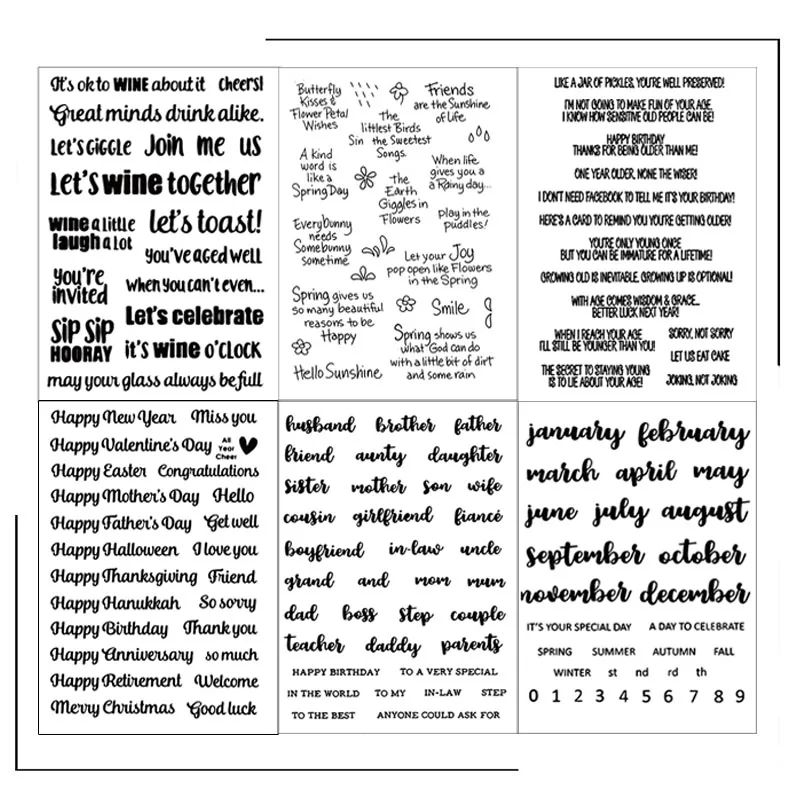 It's ok to WINE about it cheers!
Great minds drink alike.
Let's GiGGLe Join me us
Let's wine together
wine a little
laugh a lot
let's toast!
you've aged well
you're
invited
when you can't even...
Let's celebrate
SiP SiP
HOORAY
it's wine o'clock
may your glass always be full
Butterfly
Kisses &
Flower Petal
Wishes
Friends
are the Sunshine
of Life
The
littlest Birds
Sin the Sweetest
Songs.
A kind
word is
like a
Spring Day
When life
gives you a
a Rainy day...
The
Earth
Giggles in
Flowers
Play in the
puddles!
Everybunny
needs
Somebunny
sometime
Let your Joy
pop open like Flowers
in the Spring
Spring gives us
so many beautiful
reasons to be
Happy
Smile
Spring shows us
what God can do
with a little bit of dirt
and some rain
Hello Sunshine
LIKE A JAR OF PICKLES, YOU'RE WELL PRESERVED!
I'M NOT GOING TO MAKE FUN OF YOUR AGE.
I KNOW HOW SENSITIVE OLD PEOPLE CAN BE!
HAPPY BIRTHDAY
THANKS FOR BEING OLDER THAN ME!
ONE YEAR OLDER, NONE THE WISER!
I DON'T NEED FACEBOOK TO TELL ME IT'S YOUR BIRTHDAY!
HERE'S A CARD TO REMIND YOU YOU'RE GETTING OLDER!
YOU'RE ONLY YOUNG ONCE
BUT YOU CAN BE IMMATURE FOR A LIFETIME!
GROWING OLD IS INEVITABLE, GROWING UP IS OPTIONAL!
WITH AGE COMES WISDOM & GRACE...
BETTER LUCK NEXT YEAR!
WHEN I REACH YOUR AGE
I'LL STILL BE YOUNGER THAN YOU!
SORRY, NOT SORRY
LET US EAT CAKE
THE SECRET TO STAYING YOUNG
IS TO LIE ABOUT YOUR AGE!
JOKING, NOT JOKING
Happy New Year Miss you
Happy Valentine's Day
All
Year
Cheer
Happy Easter Congratulations
Happy Mother's Day Hello
Happy Father's Day Get well
Happy Halloween I love you
Happy Thanksgiving Friend
Happy Hanukkah So sorry
Happy Birthday Thank you
Happy Anniversary so much
Happy Retirement Welcome
Merry Christmas Good luck
husband brother father
friend aunty daughter
sister mother son wife
cousin girlfriend fiancé
boyfriend in-law uncle
grand and mom mum
dad boss step couple
teacher daddy parents
HAPPY BIRTHDAY TO A VERY SPECIAL
IN THE WORLD TO MY IN-LAW STEP
TO THE BEST ANYONE COULD ASK FOR
january february
march april may
june july august
september october
november december
IT'S YOUR SPECIAL DAY A DAY TO CELEBRATE
SPRING SUMMER AUTUMN FALL
WINTER st nd rd th
0 1 2 3 4 5 6 7 8 9